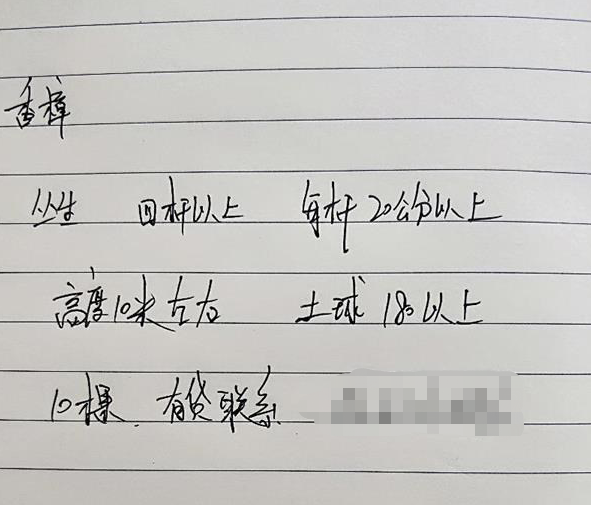 香樟
丛生 四杆以上 每杆20公分以上
高度10米左右 土球180以上
10棵.有货联系